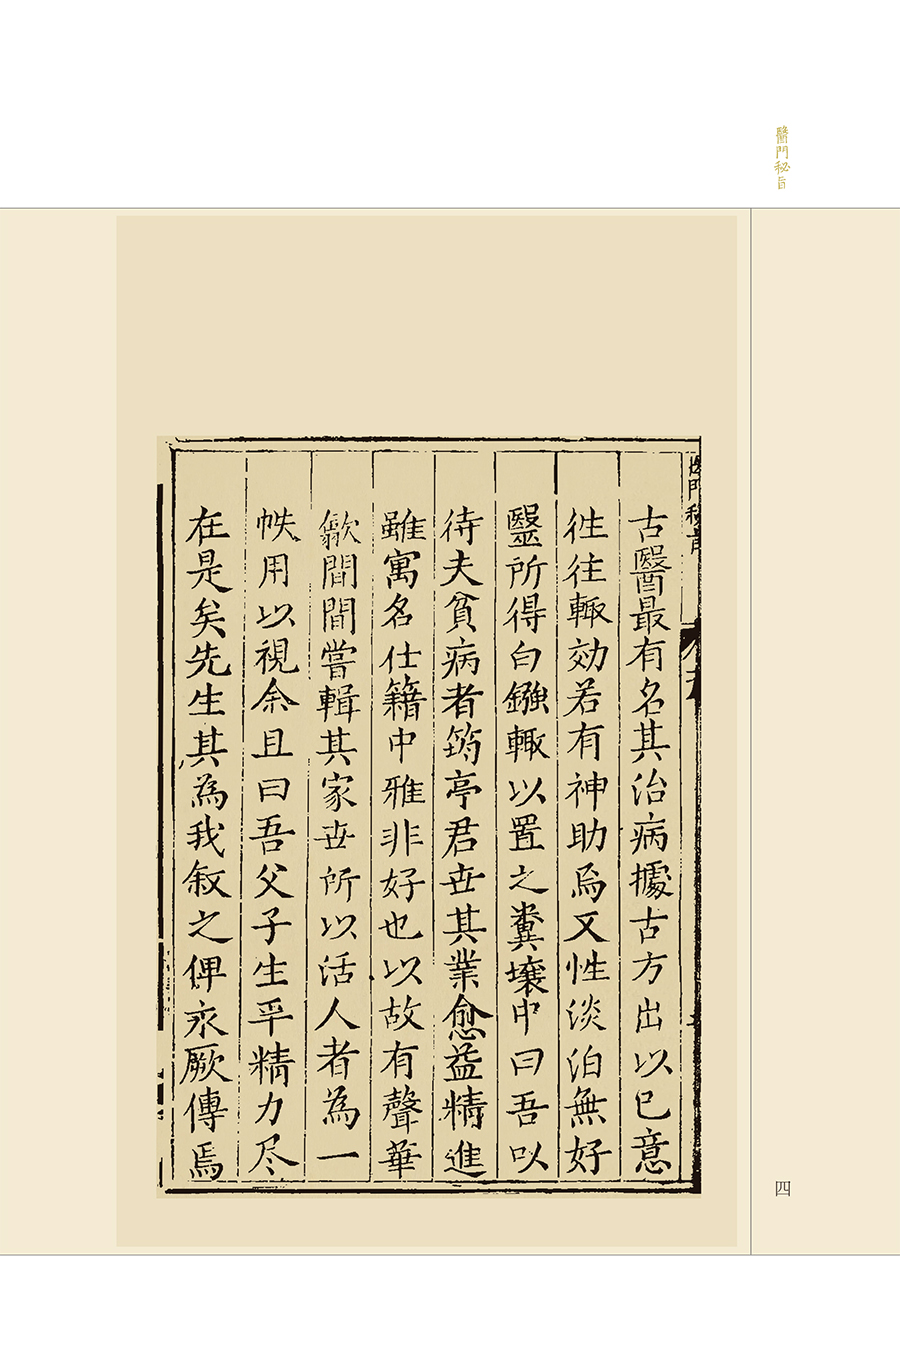 醫門秘旨
古醫最有名其治病據古方出以已意
徃徃輙効若有神助焉又性淡泊無好
毉所得白鏹輙以置之糞壌中曰吾以
待夫貧病者筠亭君世其業愈益精進
雖寓名仕籍中雅非好也以故有聲華
歙間間嘗輯其家世所以活人者為一
帙用以視余且曰吾父子生平精力尽
在是矣先生其為我叙之俾永厥傳焉
四